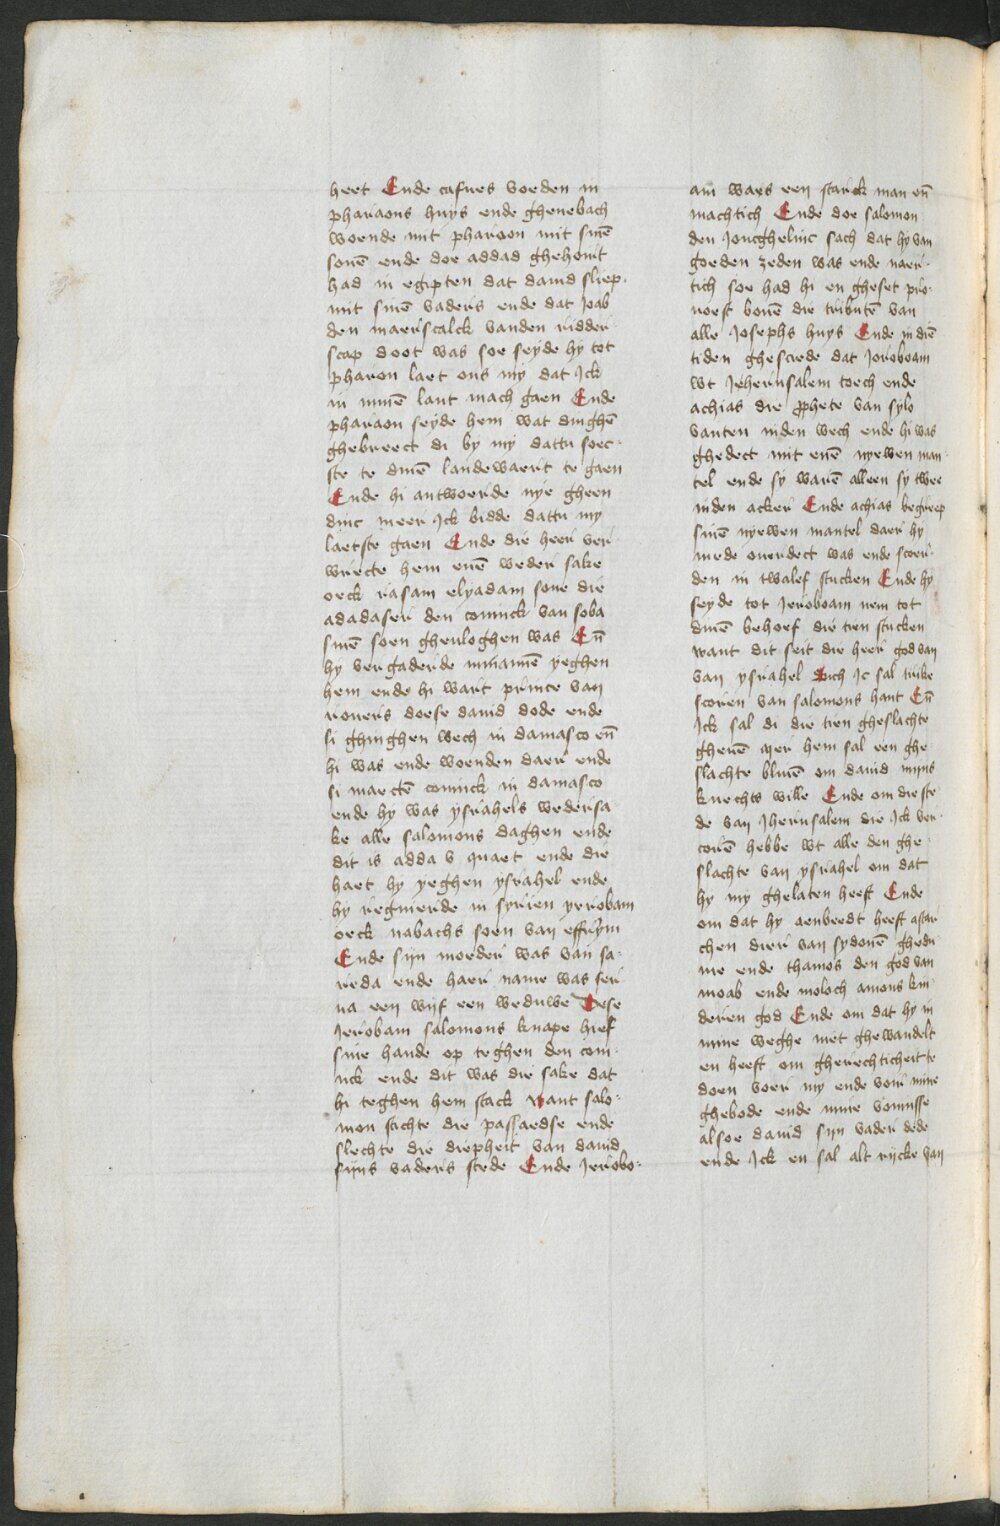 heet Ende tafnes voeden in
pharaons huys ende ghenebach
woende mit pharoon mit sinē
sonē ende doe addad ghehoirt
had in egipten dat dauid sliep
mit sinen vaders ende dat joab
den maerscalck vanden ridder
scap doot was soe seyde hy tot
pharon laet ons my dat jck
in minē lant mach gaen Ende
pharaon seyde hem wat dinghē
ghebreect di by my dattu soec-
ste te dinē landewaert te gaen
Ende hi antwoerde nye gheen
dinc meer jck bidde dattu my
laetste gaen Ende die heer ver
wrecte hem enē weder sake
oeck rasam elyadam sone die
adadaser den coninck van soba
sinē heer ghevloghen was Eñ
hy vergaderde mannē yeghen
hem ende hi wart prince van
rovers doese dauid dode ende
si ghinghen wech in damasco eñ
hi was ende woenden daer ende
si maectē coninck in damasco
ende hy was ysrahels wedersa
ke alle salomons daghen ende
dit is adda v quaet ende die
haet hy yeghen ysrahel ende
hy regnierde in syrien yerobam
oeck nabachs soen van effrym
Ende sijn moeder was van sa-
reda ende haer name was ser
na een wijf een weduwe Dese
jerobam salomons knape hief
sine hande op teghen den coni-
nck ende dit was die sake dat
hi teghen hem stack want salo-
mon stichte die passaedse ende
slechte die diepheit van dauid
sijns vaders stede Ende jerobo-
am waes een starck man eñ
machtich Ende doe salomon
den joncghelinc sach dat hy van
goeden zeden was ende naer-
tich soe had hi en gheset pro-
voest bouē die tributē van
alle josephs huys Ende in diē
tiden ghesciede dat jeroboam
wt jeherusalem toech ende
achias die prophete van sylo
vanten inden wech ende hi was
ghedect mit enē nyewen man-
tel ende sy warē alleen sy twee
inden acker Ende achias begreep
sinē nyewen mantel daer hy
mede ouerdect was ende scoer-
den in twalef stucken Ende hy
seyde tot jeroboam nem tot
dinē behoef die tien stucken
want dit seit die heer god van
van ysrahel Sich jc sal trike
scoren van salomons hant Eñ
jck sal di die tien gheslachte
gheuē mer hem sal een ghe
slachte bliuē om dauid mijns
knechts wille Ende om die ste
de van jherusalem die jck ver-
corē hebbe wt alle den ghe-
slachte van ysrahel om dat
hy my ghelaten heeft Ende
om dat hy aenbeedt heeft astar
chen dier van sydonē ghedin
ne ende thamos den god van
moab ende moloch amons kin
deren god Ende om dat hy in
mine weghe niet ghewandelt
en heeft om gherechticheit te
doen voer my ende voir mine
ghebode ende mine vonnisse
alsoe dauid sijn vader dede
ende jck en sal alt rijcke van